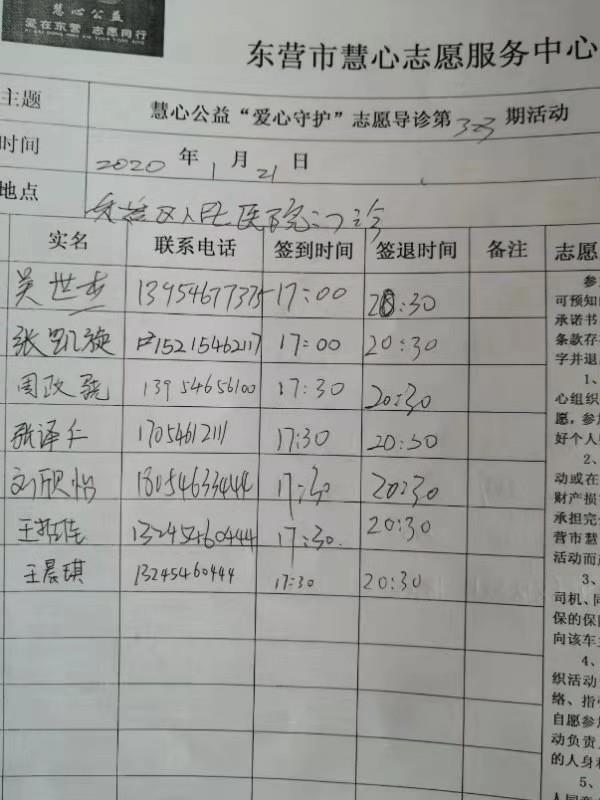 慧心公益
爱在东营 志愿同行
东营市慧心志愿服务中心
主题 慧心公益“爱心守护”志愿导诊第323期活动
时间 2020 年 1 月 21 日
地点 区人民医院门诊
实名 联系电话 签到时间 签退时间 备注 志愿
吴世杰 13954677375 17:00 20:30
张凯旋 15215462117 17:00 20:30
周政骁 13954656100 17:30 20:30
张译仁 17054612111 17:30 20:30
刘欣怡 18054633444 17:30 20:30
王哲佳 13245460444 17:30. 20:30
王晨琪 13245460444 17:30 20:30
参
可预知
承诺书
条款存
字并退
1、
心组织
愿,参加
好个人
2、
动或在
财产损
承担完
营市慧
活动而
3、
司机、同
保的保
向该车
4、
织活动
络、指
自愿参
动负责
的人身
5、